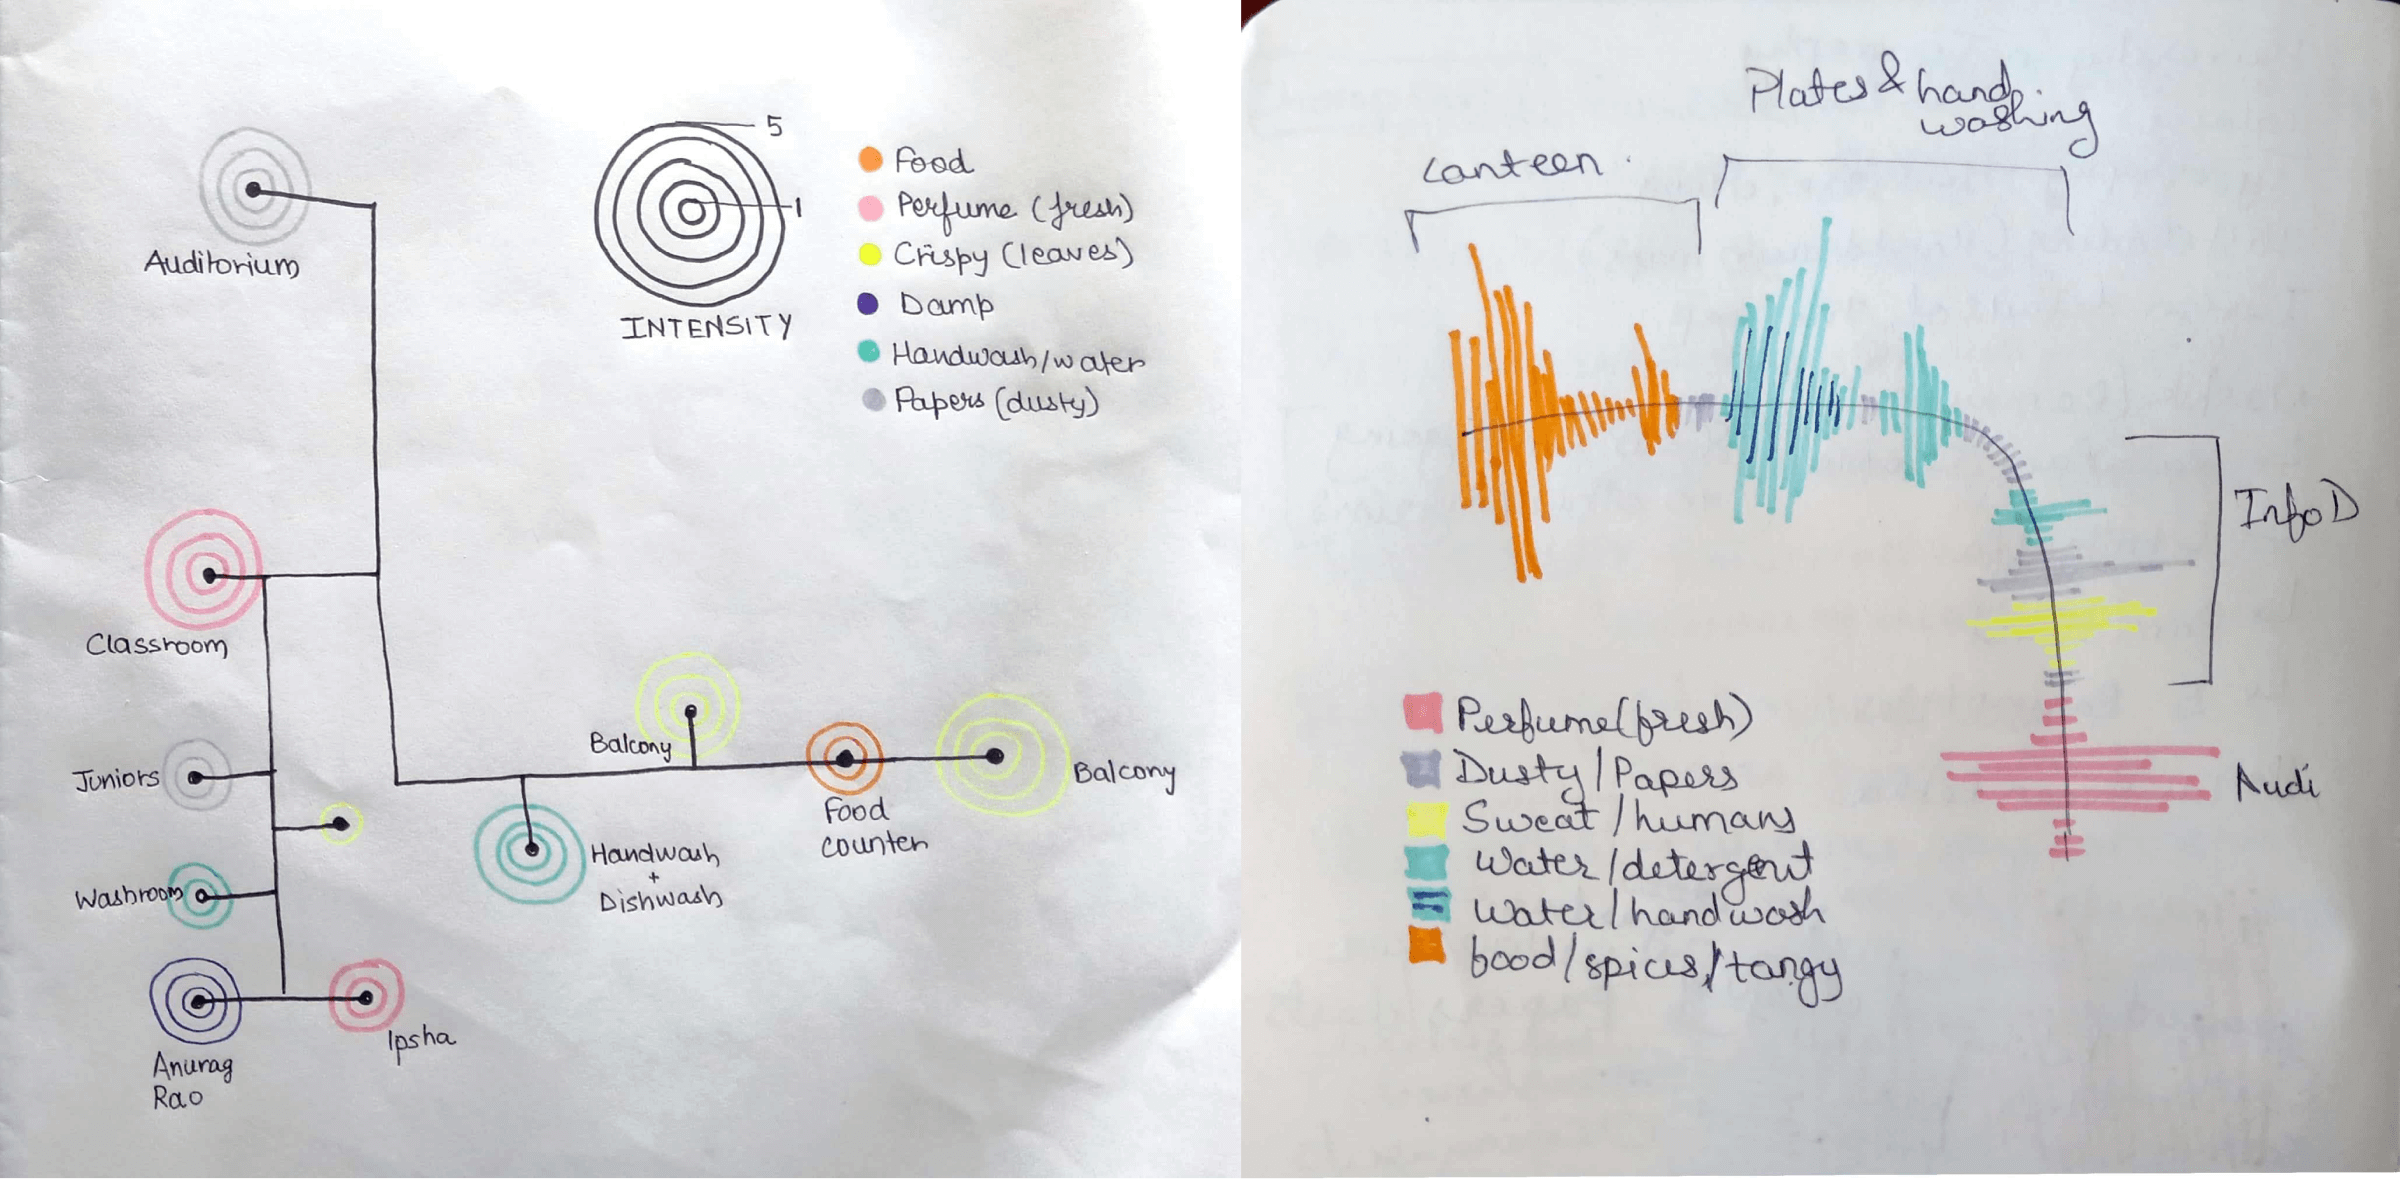 5
1
INTENSITY
Food
Perfume (fresh)
Crispy (leaves)
Damp
Handwash/water
Papers (dusty)
Auditorium
Classroom
Juniors
Washroom
Anurag
Rao
Ipsha
Balcony
Handwash
+
Dishwash
Food
counter
Balcony
Plates & hand
washing
Canteen
InfoD
Audi
Perfume(fresh)
Dusty/Papers
Sweat/humans
Water/detergent
Water/handwash
food/spices/tangy